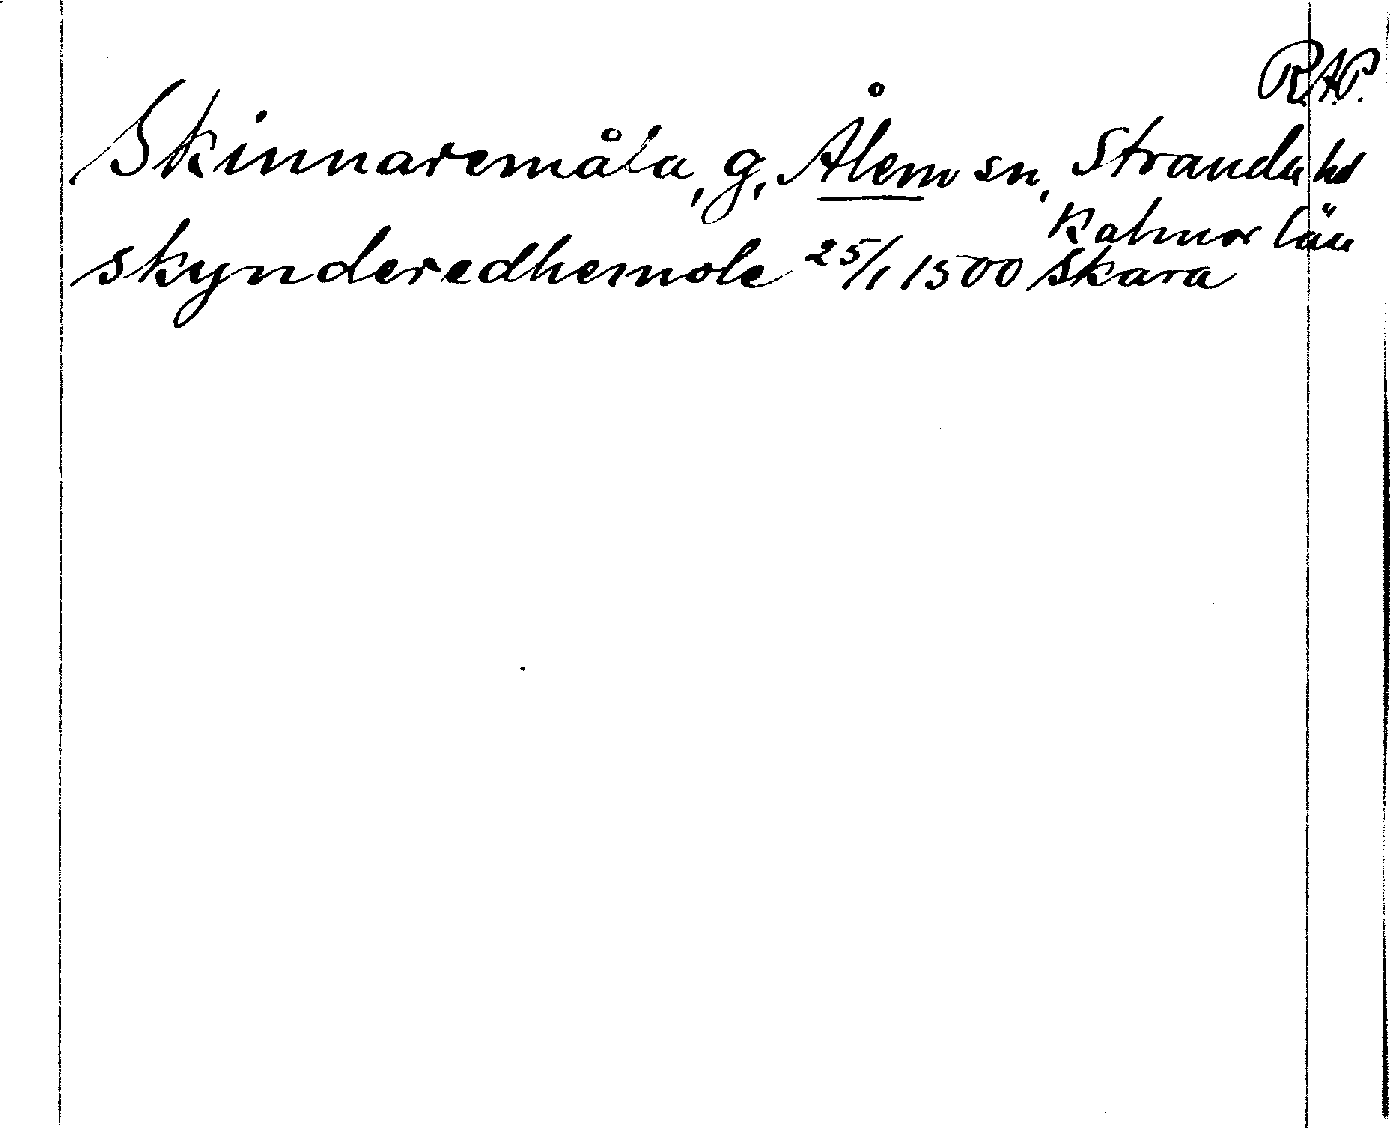 R.A.P.
Skinnaremåla, g, Ålem sn, Stranda hd
Kalmar län
skynderedhemole 25/1 1500 Skara